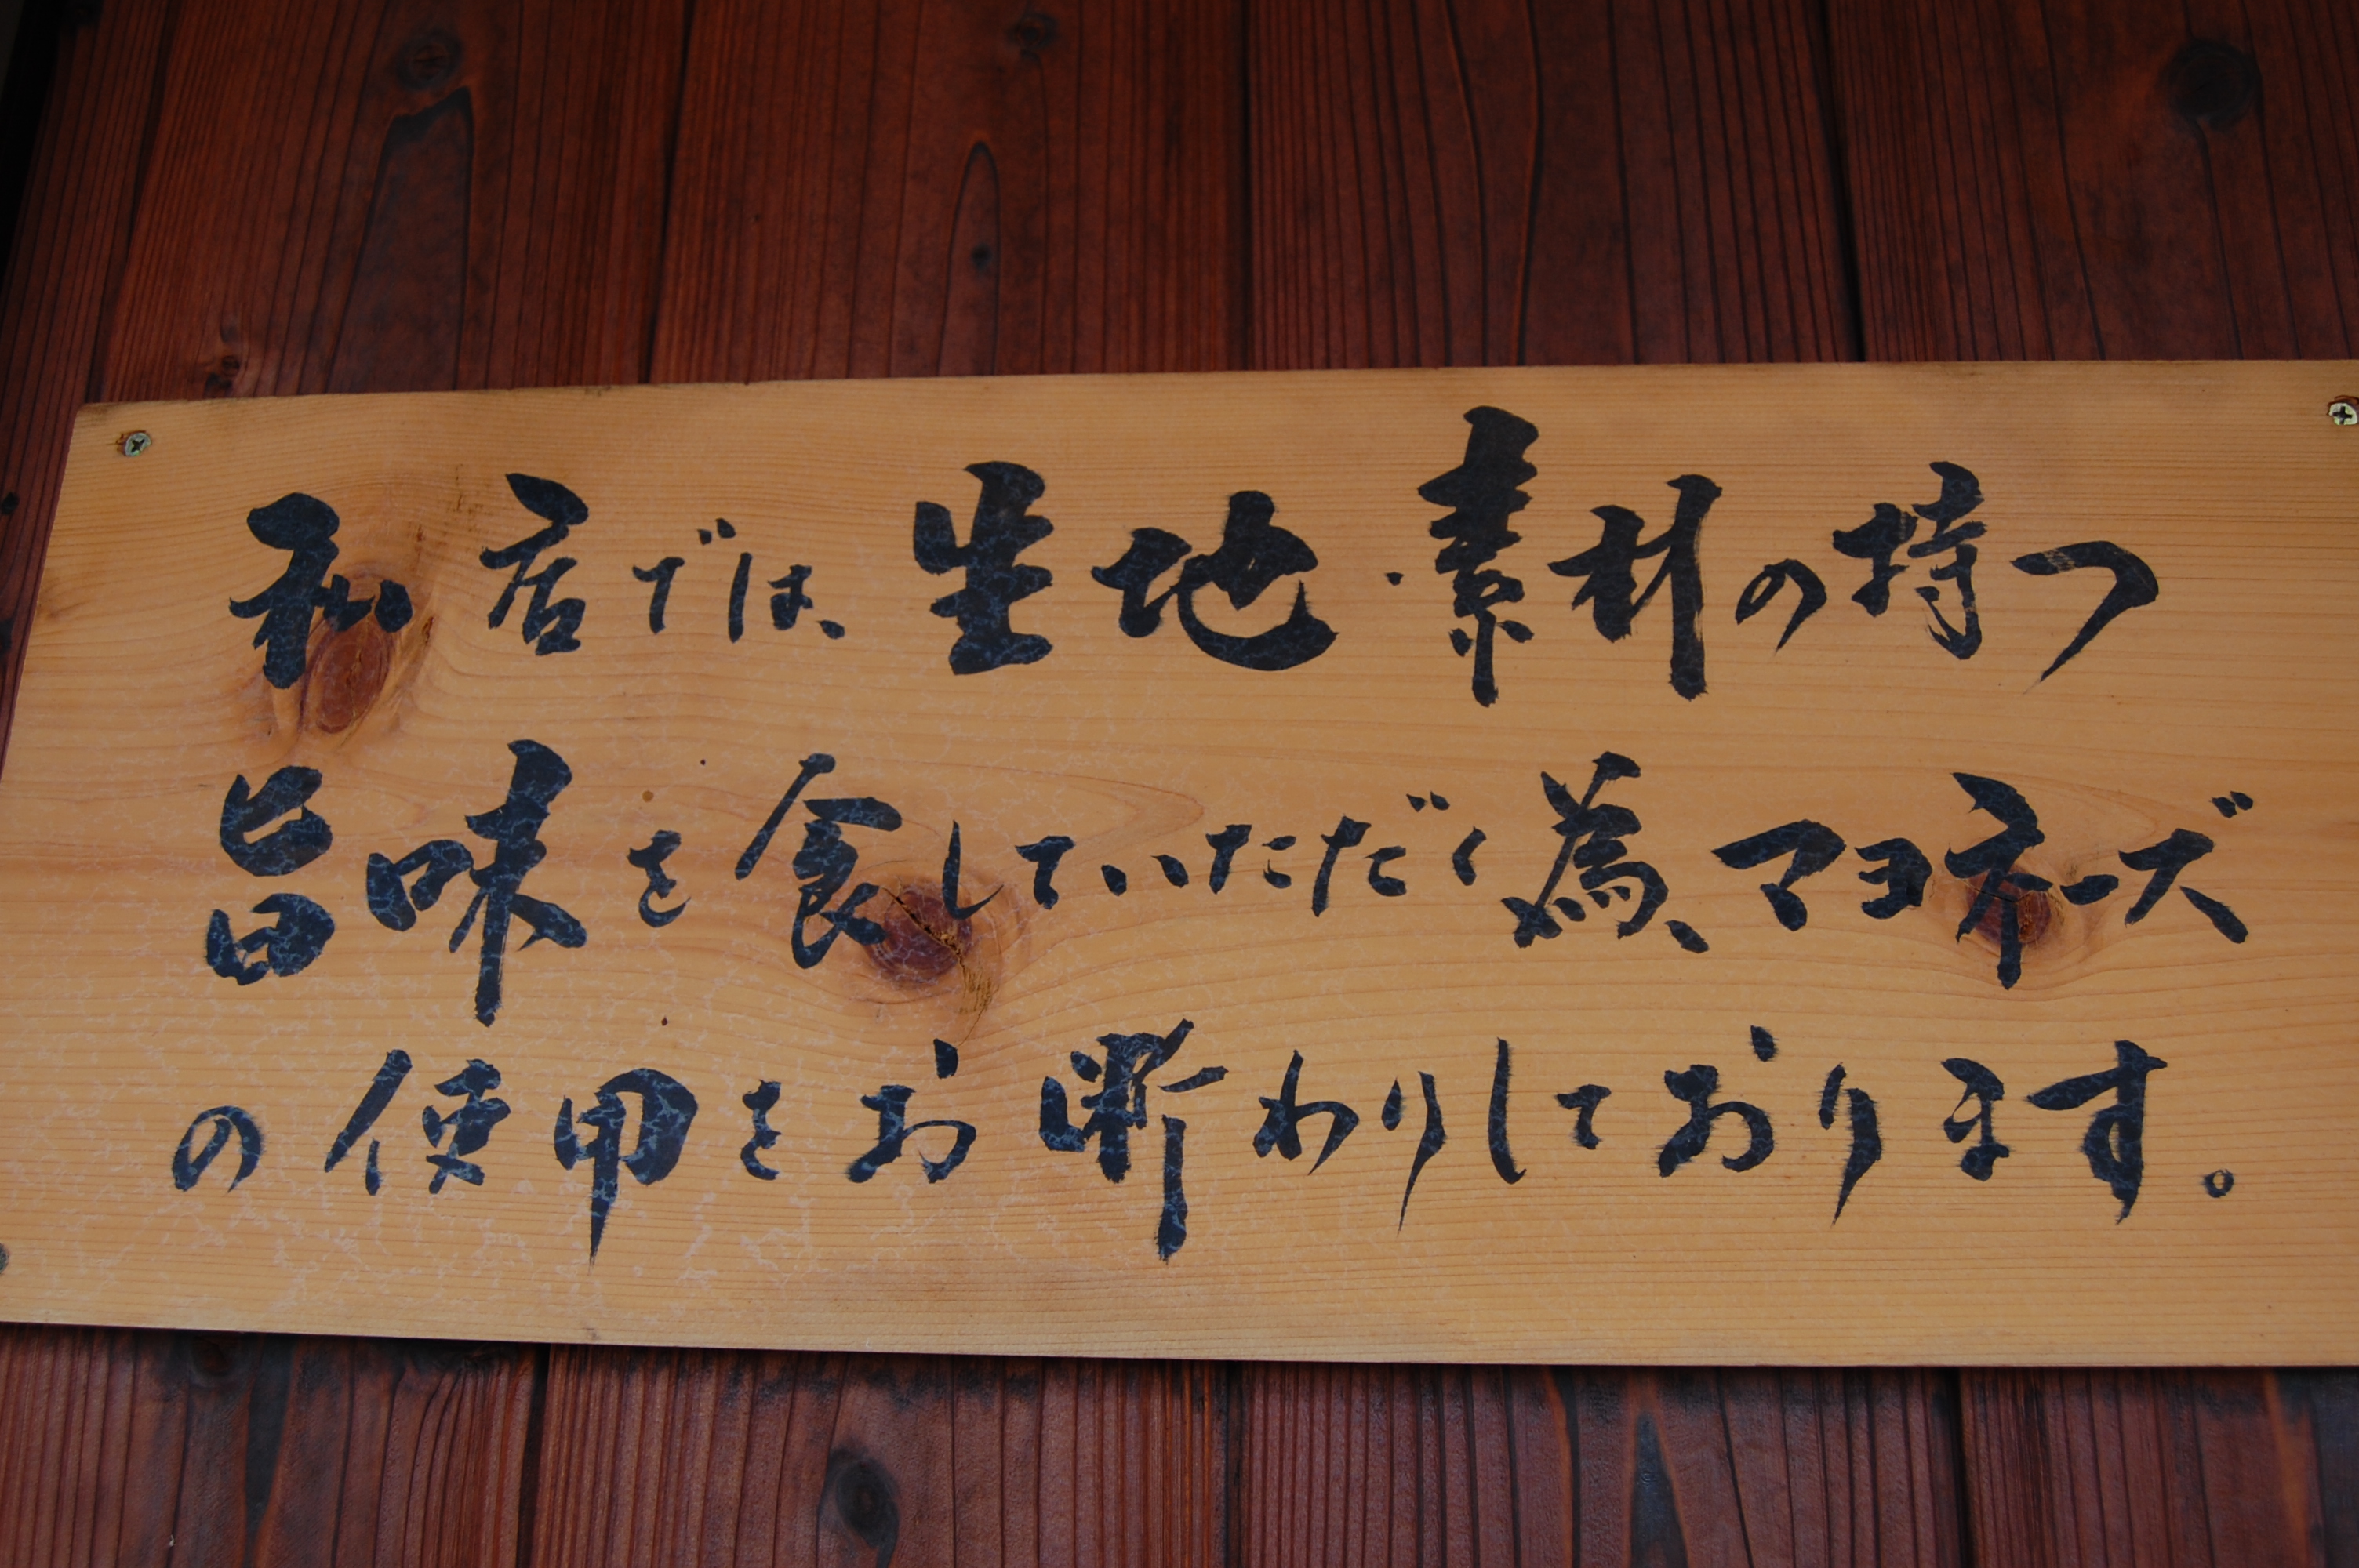 私店では、生地・素材の持つ
旨味を食していただく為、マヨネーズ
の使用をお断わりしております。